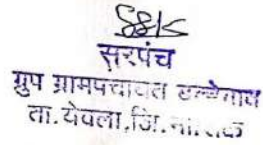 सरपंच
ग्रुप ग्रामपंचायत
ता. येवला, जि. नाशिक